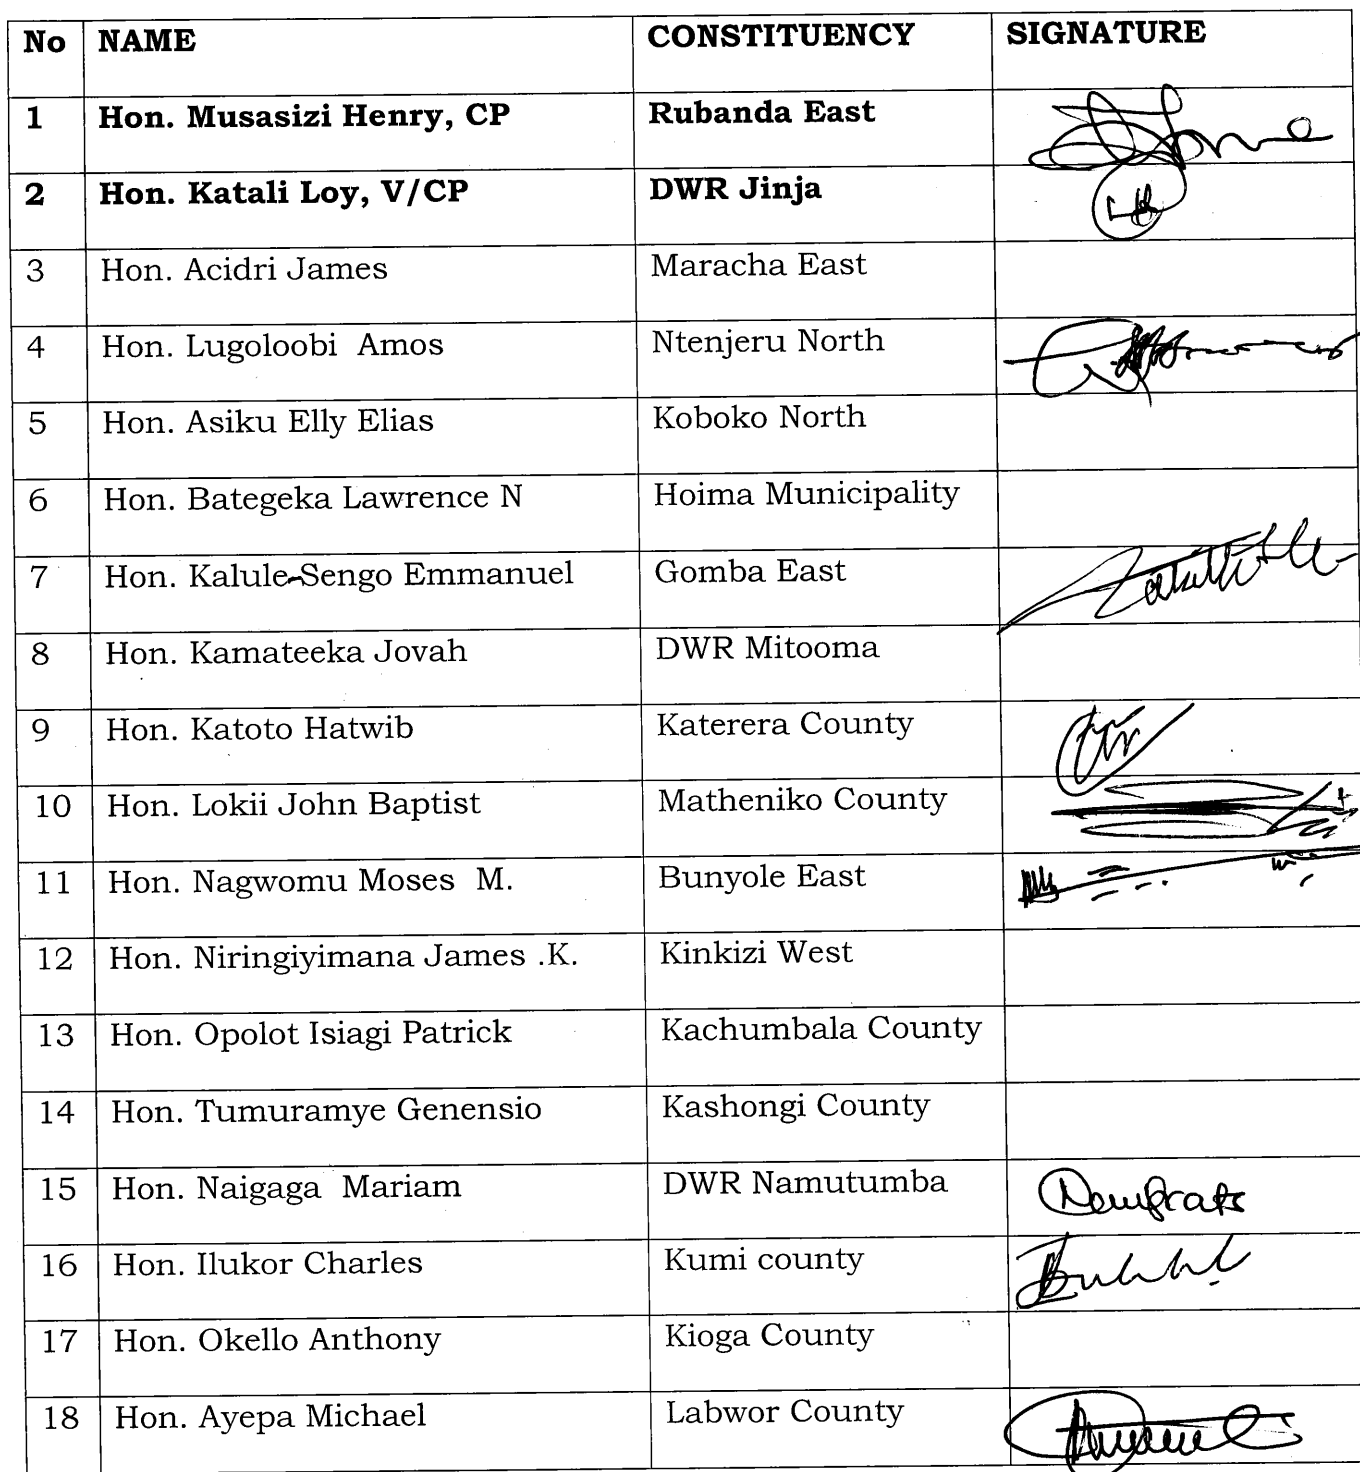 No NAME CONSTITUENCY SIGNATURE
1 Hon. Musasizi Henry, CP Rubanda East
2 Hon. Katali Loy, V/CP DWR Jinja
3 Hon. Acidri James Maracha East
4 Hon. Lugoloobi Amos Ntenjeru North
5 Hon. Asiku Elly Elias Koboko North
6 Hon. Bategeka Lawrence N Hoima Municipality
7 Hon. Kalule-Sengo Emmanuel Gomba East
8 Hon. Kamateeka Jovah DWR Mitooma
9 Hon. Katoto Hatwib Katerera County
10 Hon. Lokii John Baptist Matheniko County
11 Hon. Nagwomu Moses M. Bunyole East
12 Hon. Niringiyimana James .K. Kinkizi West
13 Hon. Opolot Isiagi Patrick Kachumbala County
14 Hon. Tumuramye Genensio Kashongi County
15 Hon. Naigaga Mariam DWR Namutumba
16 Hon. Ilukor Charles Kumi county
17 Hon. Okello Anthony Kioga County
18 Hon. Ayepa Michael Labwor County